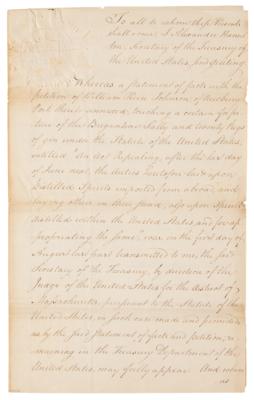 To all to whom these Presents
shall come I Alexander Hamil
ton, Secretary of the Treasury of
the United States, send greeting
Whereas a statement of facts with the
petition of William Johnson, of Newbury
Port thereto annexed, touching a certain forfei
ture of the Brigantine Sally and twenty Kegs
of gin under the Statute of the United States,
entitled "An Act Repealing, after the last day
of June next, the duties heretofore laid upon
Distilled Spirits imported from abroad, and
laying others in their stead; also upon Spirits
distilled within the United States, and for ap
propriating the same", was on the first day of
August last past transmitted to me, the said
Secretary of the Treasury, by direction of the
Judge of the United States for the district of
Massachusetts, pursuant to the Statute of the
United States, in such case made and provided
as by the said statement of facts and petition, re
maining in the Treasury Department of the
United States, may fully appear. And where
as